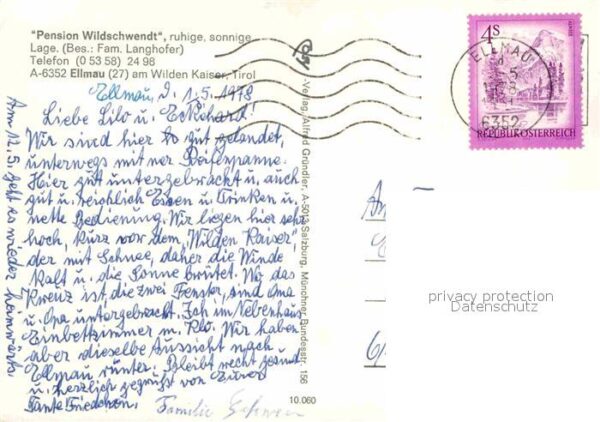 "Pension Wildschwendt", ruhige, sonnige
Lage. (Bes.: Fam. Langhofer)
Telefon (0 53 58) 24 98
A-6352 Ellmau (27) am Wilden Kaiser, Tirol
Ellmau, d. 1.5.1978
Liebe Lilo u. Eckehard!
Wir sind hier so gut gelandet,
unterwegs mit ner
Hier gut untergebracht u. auch
gut u. reichlich Essen u. Trinken u.
nette Bedienung. Wir liegen hier sehr
hoch, kurz vor dem "Wilden Kaiser"
der mit Schnee, daher die Winde
kalt u. die Sonne brütet. Wo das
Kreuz ist, die zwei Fenster, sind Oma
u. Opa untergebracht. Ich im Nebenhaus
Einbettzimmer m. Klo. Wir haben
aber dieselbe Aussicht nach
Ellmau runter. Bleibt recht gesund
u. herzlich gegrüßt von Eurer
Tante Friedchen.
Familie
Am 12.5. geht es wieder heimwärts.
Verlag Alfred Gründler, A-5013 Salzburg, Münchner Bundesstr. 156
10.060
4s
REPUBLIK ÖSTERREICH
ELLMAU
6352
privacy protection
Datenschutz